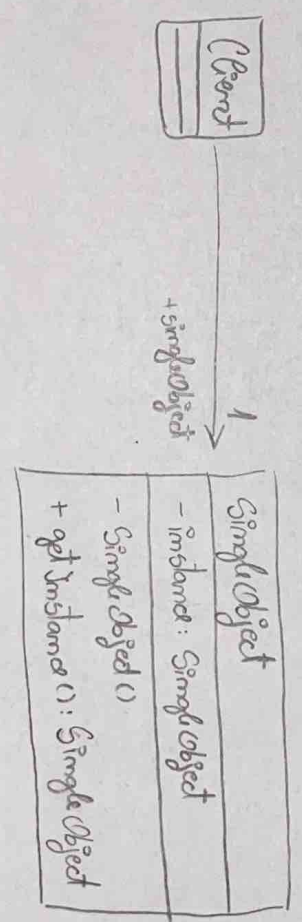 Client
1
+singleObject
SingleObject
- instance: SingleObject
- SingleObject()
+ getInstance(): SingleObject